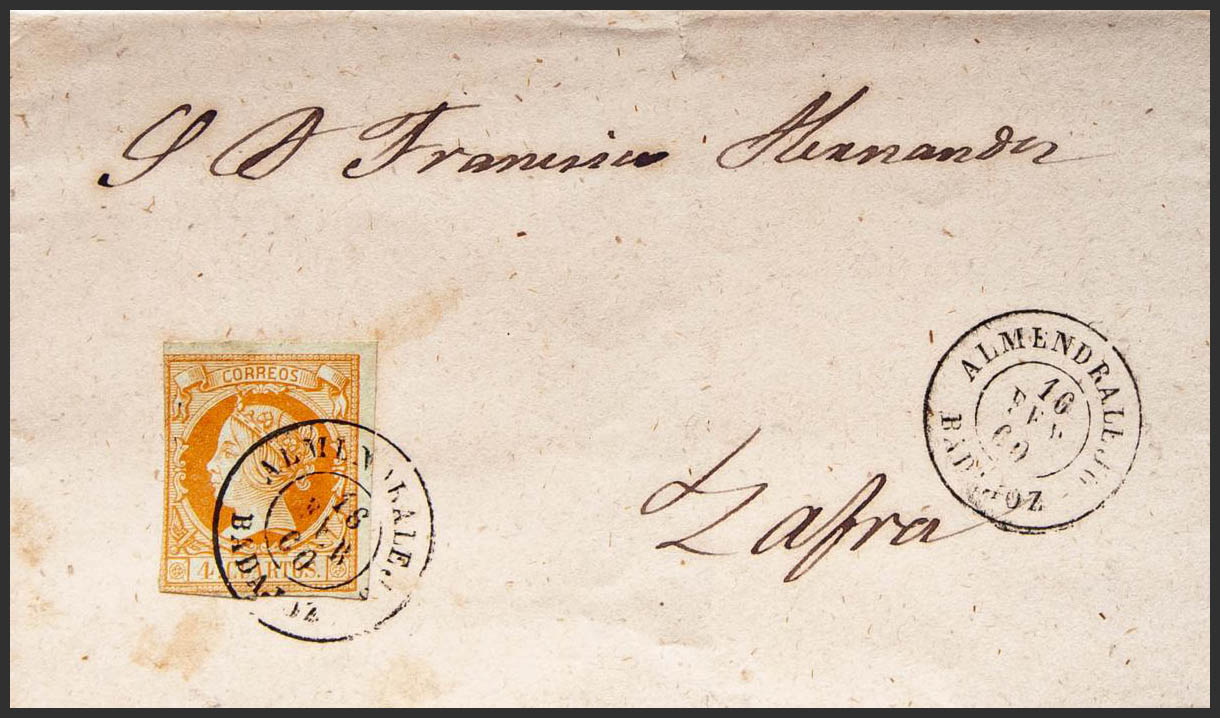 S D Francisco Hernandez
CORREOS
4 CUARTOS.
ALMENDRALEJO
BADAJOZ
Zafra
ALMENDRALEJO
16
FEB
60
BADAJOZ